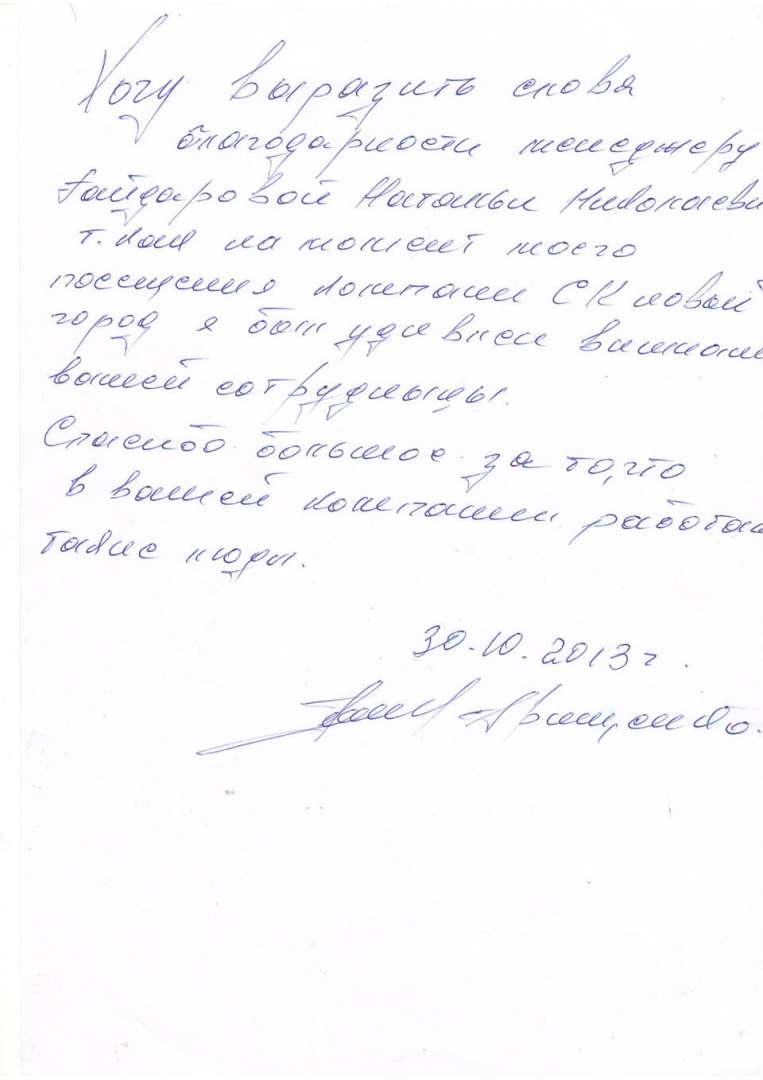 Хочу выразить слова
благодарности менеджеру
Гайдаровой Натальи Николаевн
т.как на момент моего
посещения компании СК новый
город я был удивлен вниман
вашей сотрудницы.
Спасибо большое за то, что
в вашей компании работаю
такие люди.
30.10.2013 г.